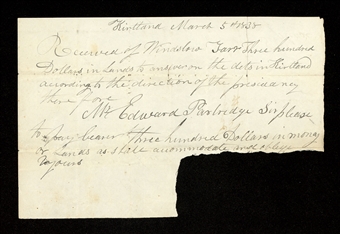 Kirtland March 5th 1838
Received of Winslow Farr Three hundred
Dollars in Lands to answer on the debts in Kirtland
according to the direction of the presidency
there fore
Mr Edward Partridge Sir please
to pay bearer three hundred Dollars in money
or Lands as shall accommodate and oblige
yours